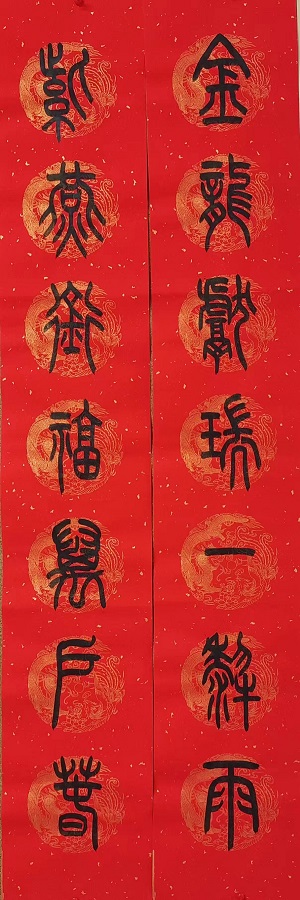 金龍獻瑞一犂雨
紫燕銜福萬戶春